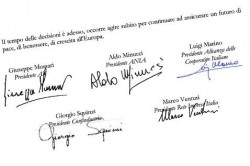 Il tempo delle decisioni è adesso, occorre agire subito per continuare ad assicurare un futuro di
pace, di benessere, di crescita all'Europa.
Giuseppe Mussari
Presidente ABI
Aldo Minucci
Presidente ANIA
Luigi Marino
Presidente Alleanza delle
Cooperative Italiane
Aldo Minucci
Giorgio Squinzi
Presidente Confindustria
Marco Venturi
Presidente Rete Imprese Italia
Giorgio Squinzi
Marco Venturi